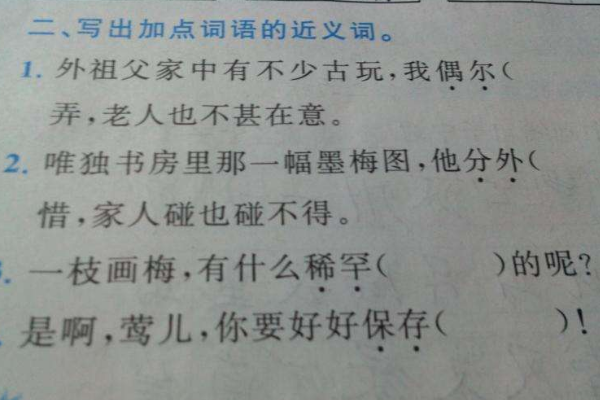 二、写出加点词语的近义词。
1. 外祖父家中有不少古玩,我偶尔(
弄,老人也不甚在意。
2. 唯独书房里那一幅墨梅图,他分外(
惜,家人碰也碰不得。
一枝画梅,有什么稀罕( )的呢?
是啊,莺儿,你要好好保存( )!